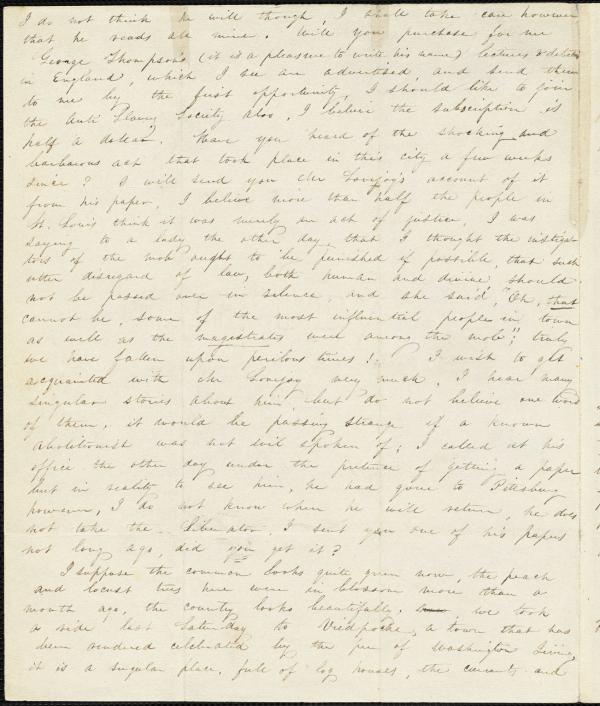 I do not think he will though, I shall take care however
that he reads all mine. Will you purchase for me
George Thompson's (it is a pleasure to write his name) lectures & debates
in England, which I see are advertised, and send them
to me by the first opportunity, I should like to join
the Anti Slavery Society also, I believe the subscription is
half a dollar. Have you heard of the shocking and
barbarous act that took place in this city a few weeks
since? I will send you Mr Lovejoy's account of it
from his paper, I believe more than half the people in
St. Louis think it was merely an act of justice, I was
saying to a lady the other day that I thought the instiga
tors of the mob ought to be punished if possible, that such
utter disregard of law, both human and divine, should
not be passed over in silence, and she said, "Oh, that
cannot be, some of the most influential people in town
as well as the magistrates were among the mob"; truly
we have fallen upon perilous times! I wish to get
acquainted with Mr Lovejoy very much, I hear many
singular stories about him but do not believe one word
of them, it would be passing strange if a known
abolitionist was not evil spoken of; I called at his
office the other day under the pretence of getting a paper
but in reality to see him, he had gone to Pittsburg
however, I do not know when he will return, he does
not take the Liberator. I sent you one of his papers
not long ago, did you get it?
I suppose the common looks quite green now, the peach
and locust trees here were in blossom more than a
month ago, the country looks beautifully. we took
a ride last Saturday to Vied poche, a town that has
been rendered celebrated by the pen of Washington Irving,
it is a singular place, full of log houses, the currents and